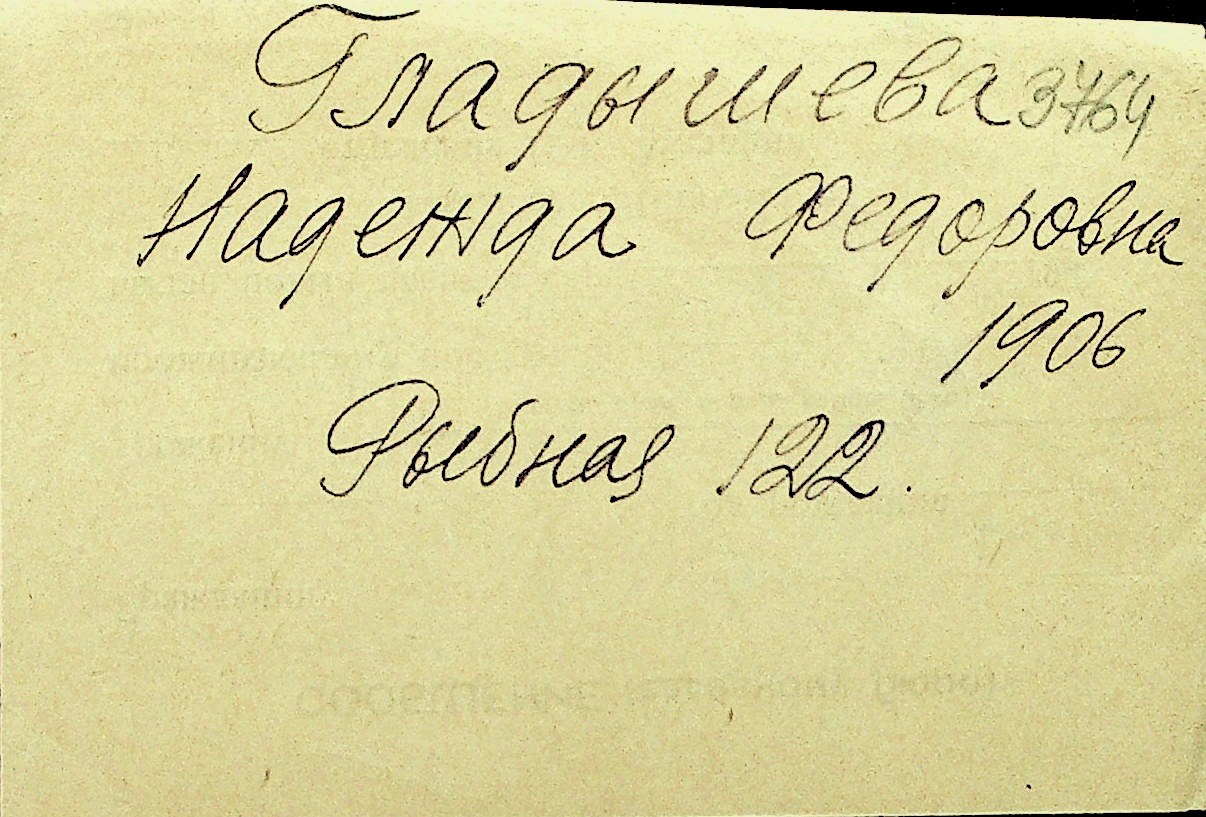 Гладышева 3764
Надежда Федоровна
1906
Рыбная 122.